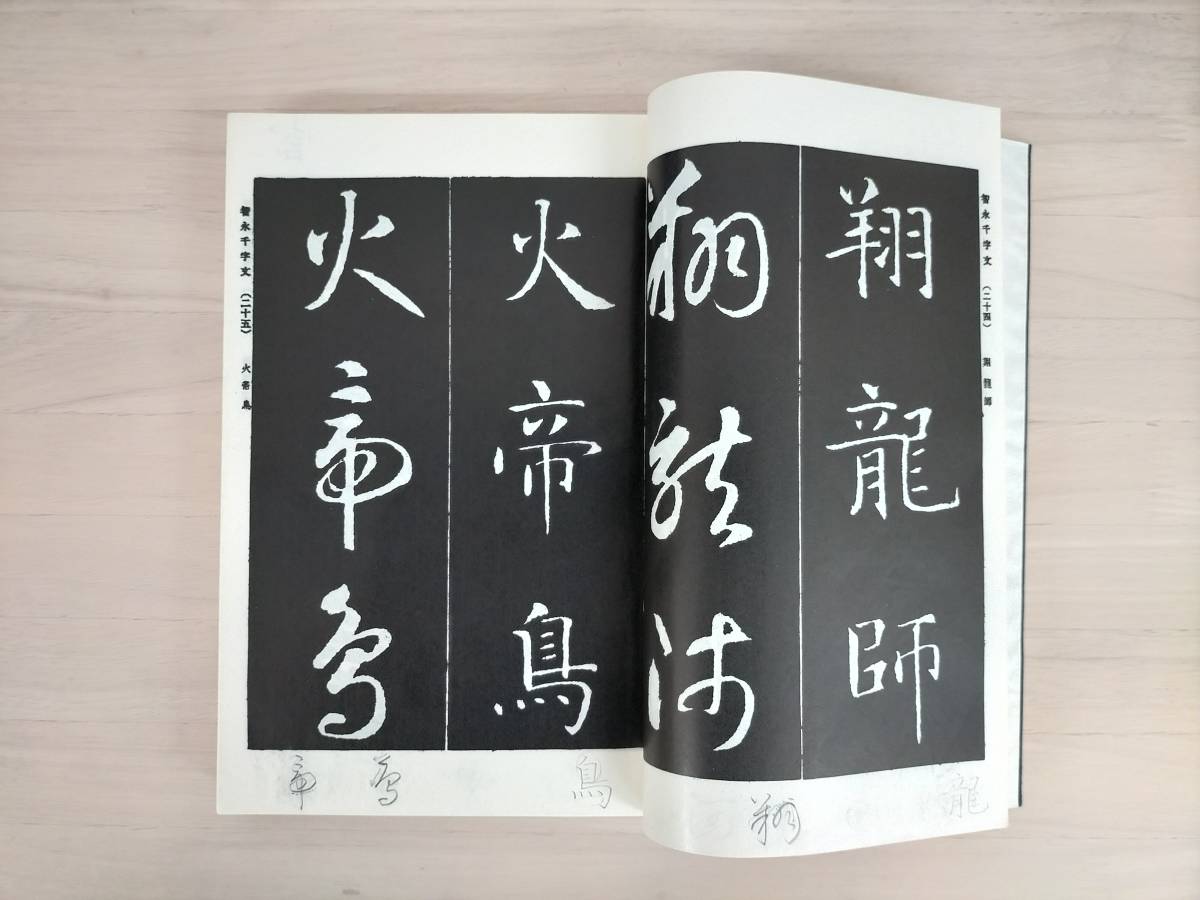 智永千字文 (二十四) 翔龍師
翔龍師
翔龍師
龍
翔
火帝鳥
火帝鳥
智永千字文 (二十五) 火帝鳥
鳥
鳥
帝